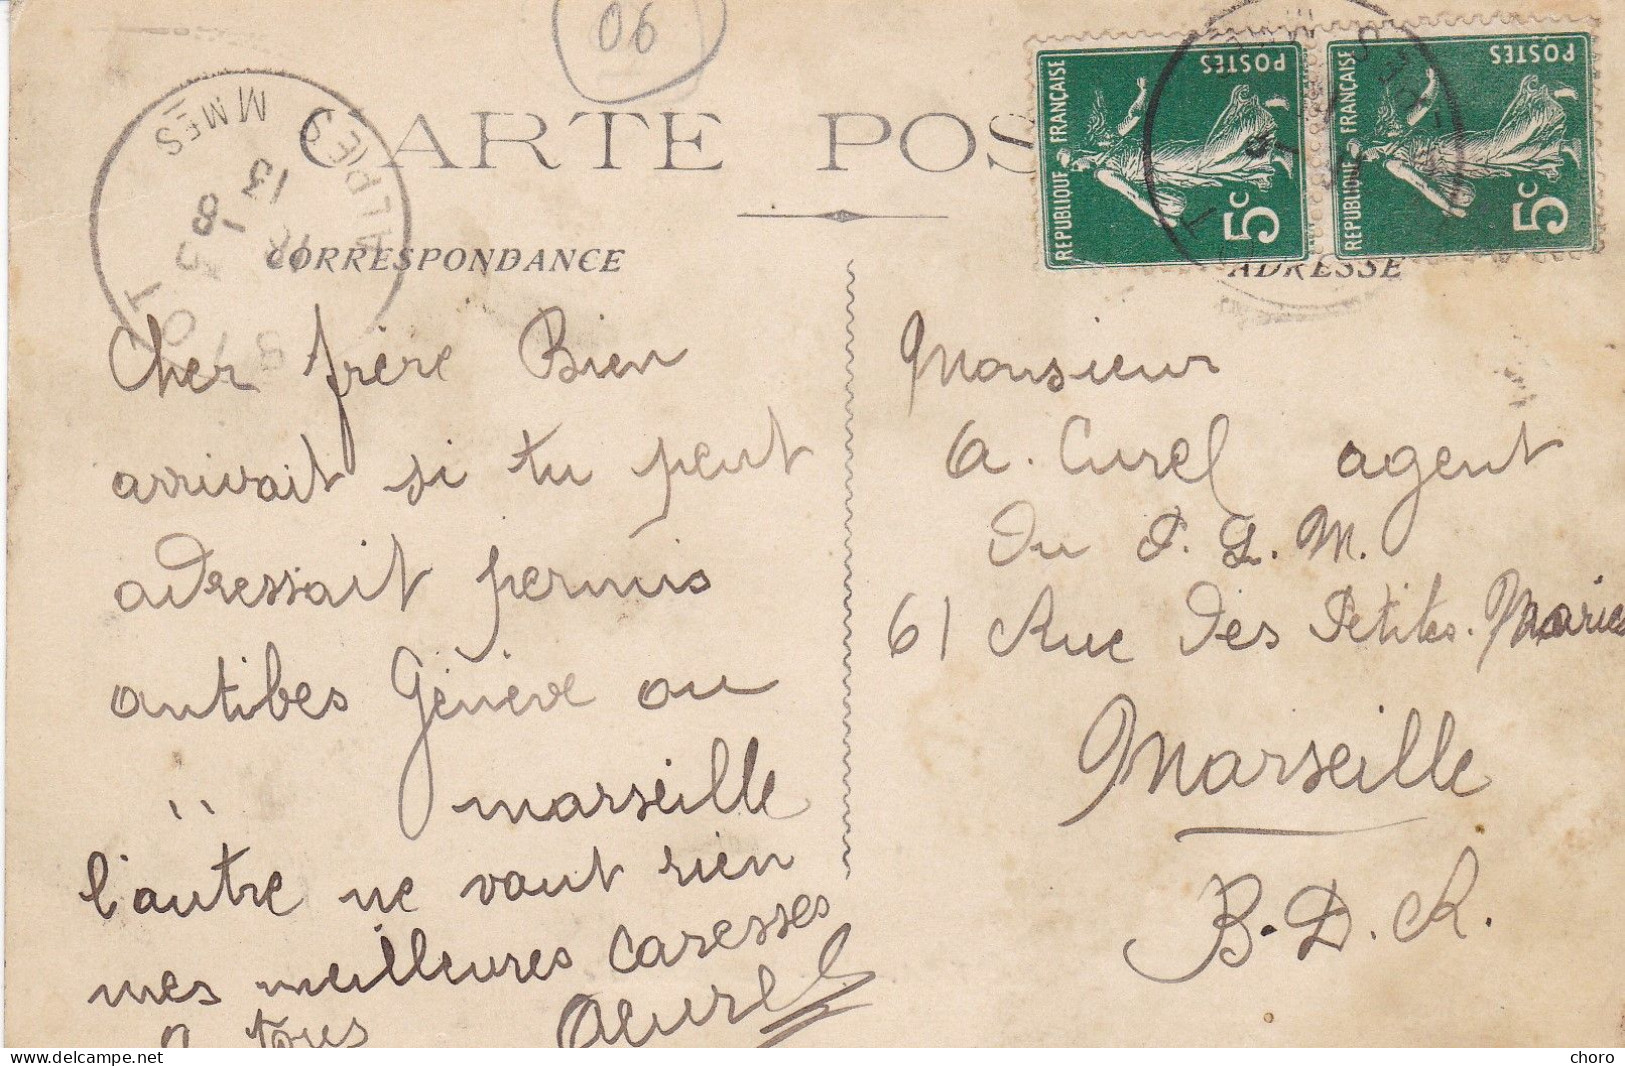 06
CARTE POS
CORRESPONDANCE
ADRESSE
REPUBLIQUE FRANÇAISE
POSTES
5c
REPUBLIQUE FRANÇAISE
POSTES
5c
ALPES MMES
13 -8
Cher frère Bien
arrivait si tu peut
adressait permis
antibes Génève ou
" marseille
l'autre ne vaut rien
mes meilleures Caresses
a tous
Monsieur
A. Curel agent
Du P. L. M.
61 Rue Des Petites. Maries
Marseille
B. D. R.
choro